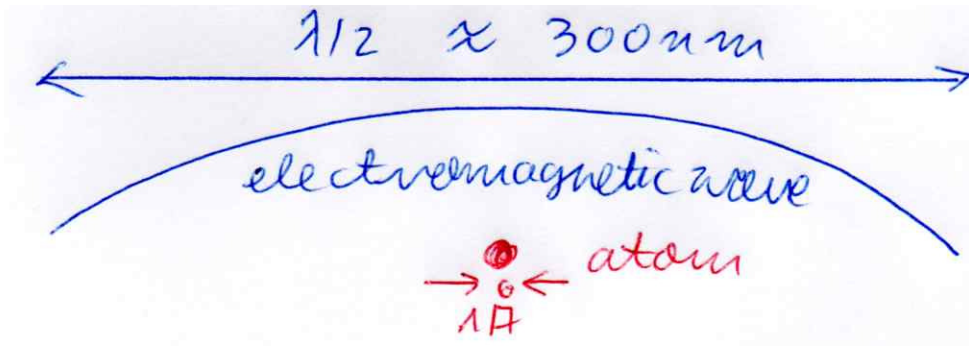 λ/2 ≈ 300nm
electromagnetic wave
atom
1Å